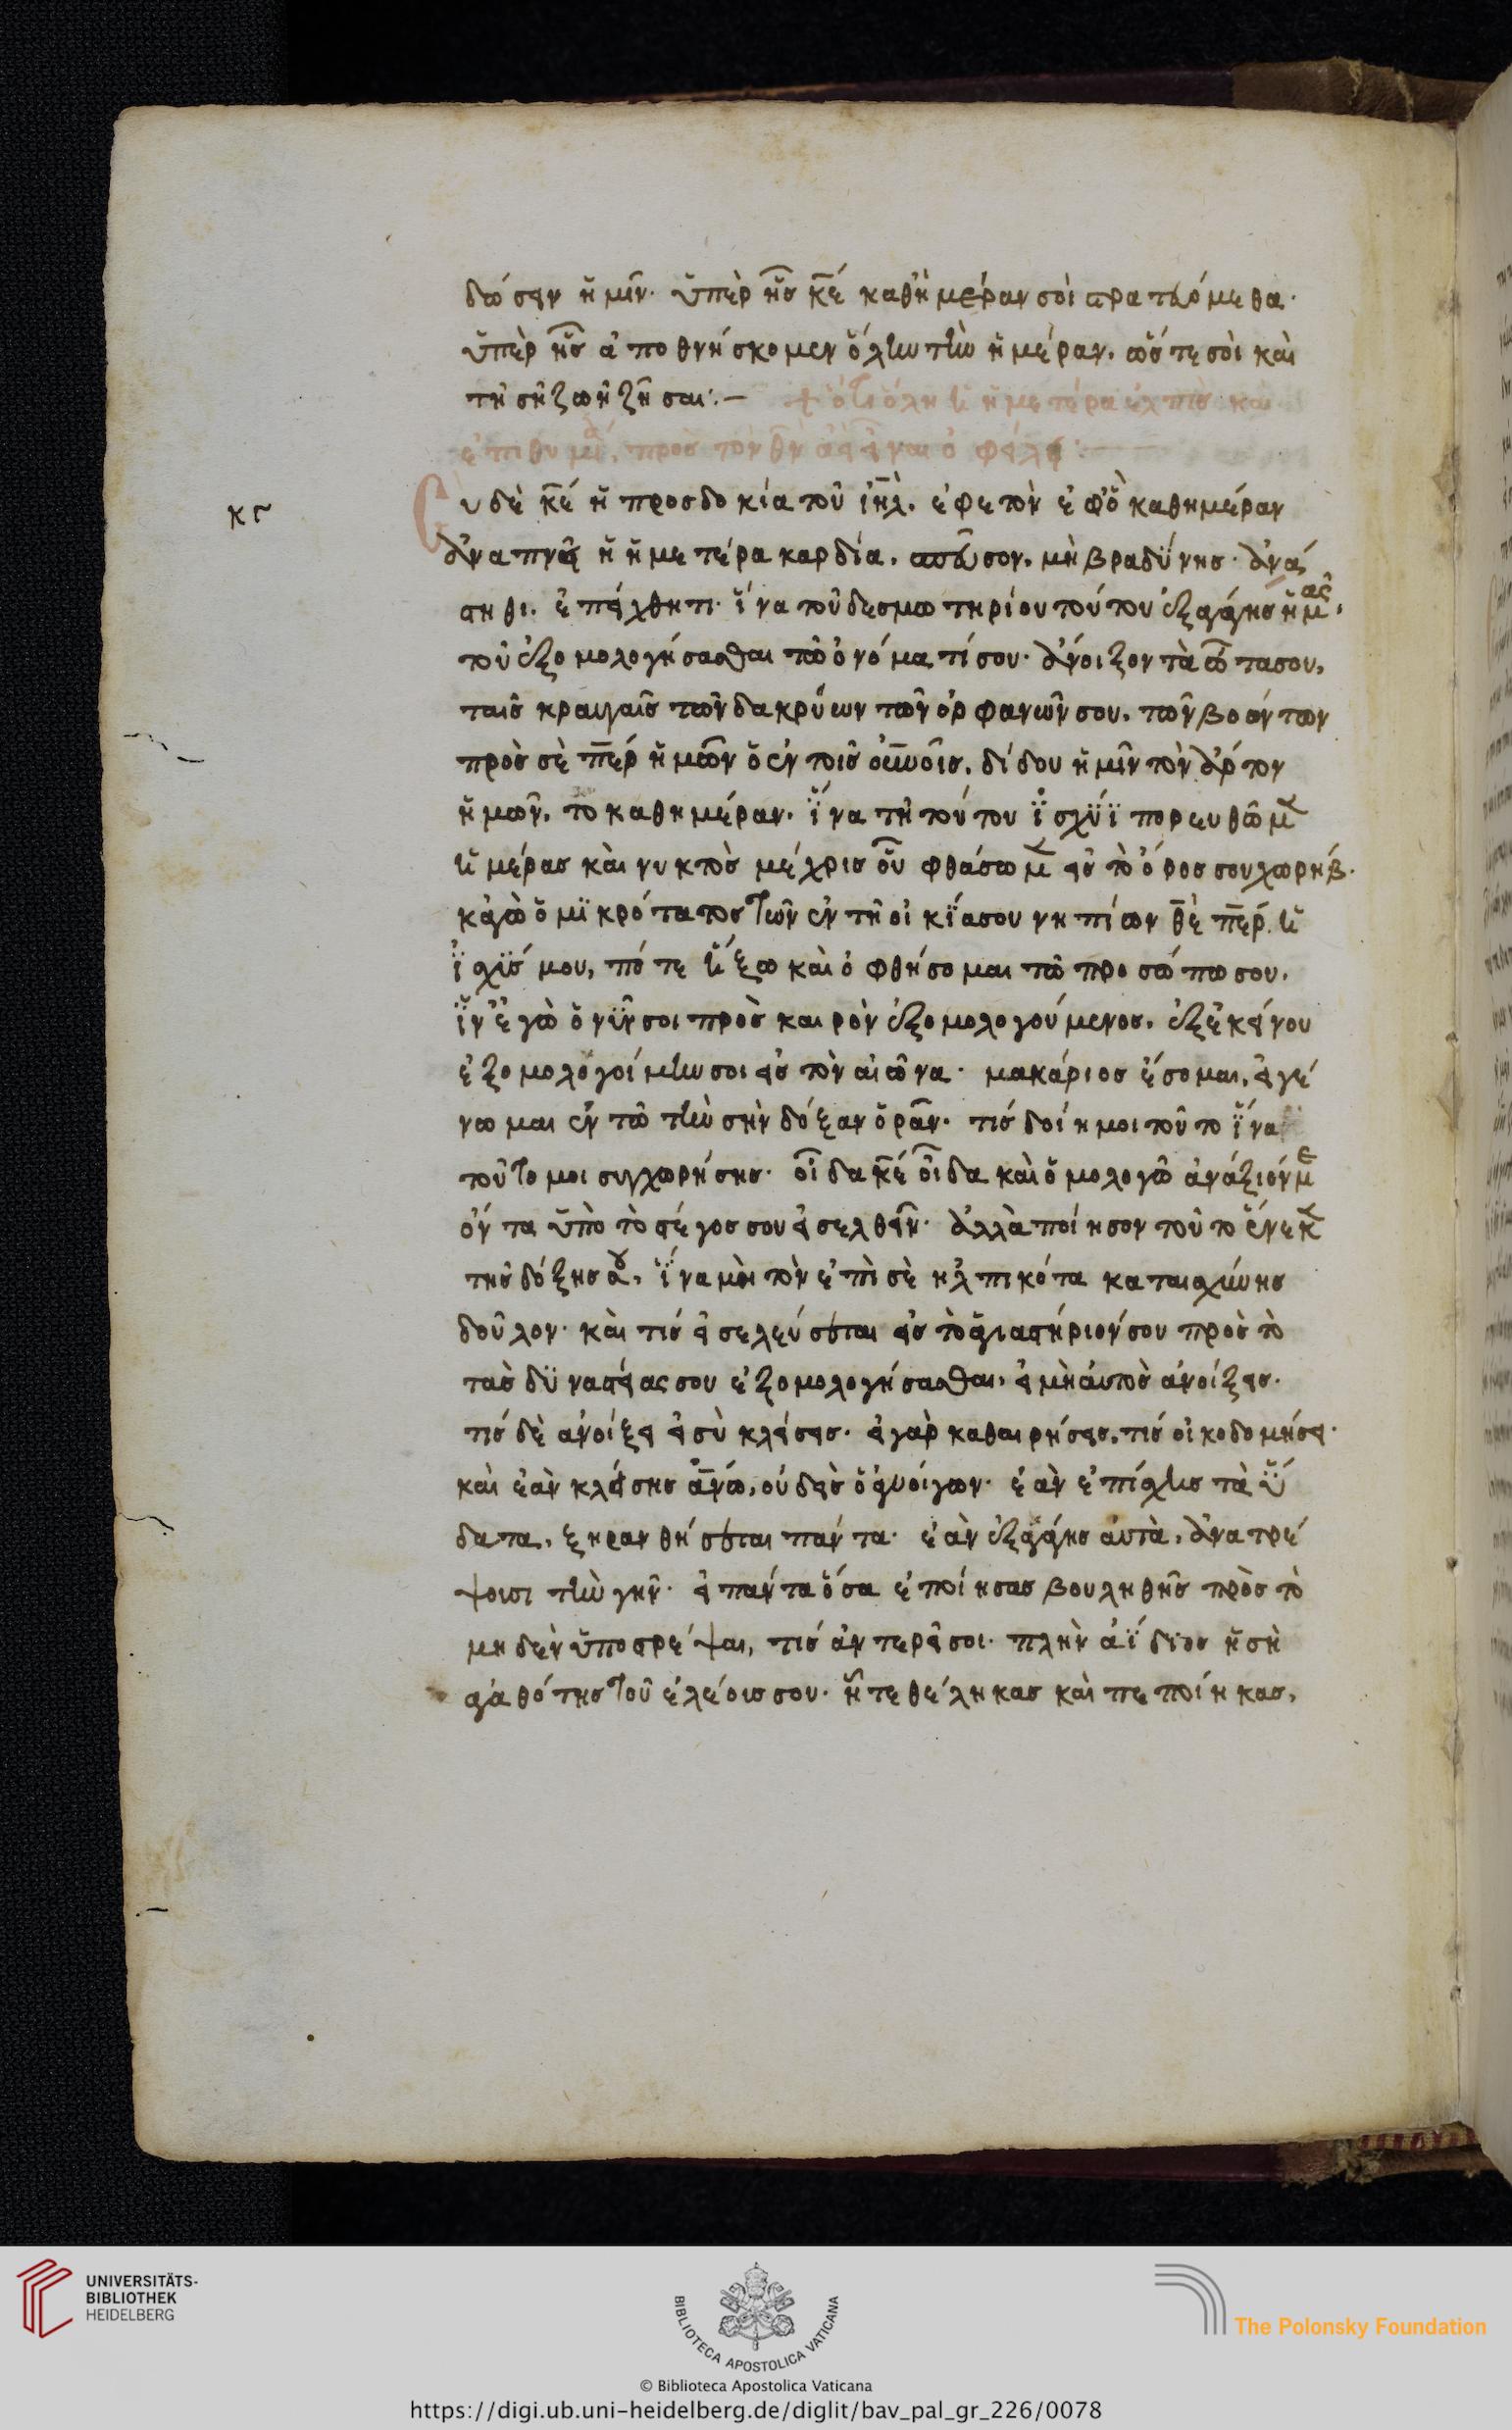 δώσειν ἡμῖν· ὑπὲρ ἧς κ̅ε̅ καθημέραν σοὶ στρατευόμεθα·
ὑπὲρ ἧς ἀποθνήσκομεν ὅλην τὴν ἡμέραν, ὥστε σὸι καὶ
τῆ σῆ ζωῆ ζῆσαι:–
ὅτι ὅλη ἡ ἡμετέρα ἐλπὶς καὶ
ἐπιθυμία, πρὸς τὸν θ̅ν̅ εἶναι ὀφείλει:–
κγ
Συ δὲ κ̅ε̅ ἡ προσδοκία τοῦ ι̅η̅λ̅, ἐφετὸν ἐφὃ καθημέραν
ἀναπνεῖ ἡ ἡμετέρα καρδία, σπεῦσον, μὴ βραδύνης· ἀνά
στηθι. ἐπείχθητι· ἵνα τοῦ δεσμωτηρίου τούτου ἐξαγάγης ἡμᾶς,
τοῦ ἐξομολογήσασθαι τῶ ὀνόματί σου· ἄνοιξον τὰ ὦτα σου,
ταῖς κραυγαῖς τῶν δακρύων τῶν ὀρφανῶν σου, τῶν βοόντων
πρὸς σὲ π̅ε̅ρ̅ ἡμῶν ὁ ἐν τοῖς ο̅υ̅ν̅ο̅ι̅ς̅, δίδου ἡμῖν τὸν ἄρτον
ἡμῶν, το καθημέραν· ἵνα τῆ τούτου ἰσχύϊ πορευθῶμ
ἡμέρας καὶ νυκτὸς μέχρις οὗ φθάσωμ εἰς τὸ ὄρος σου χωρήβ·
κἀγὼ ὁ μϊκρότατος τῶν ἐν τῆ οἰκία σου νηπίων θ̅ε̅ π̅ε̅ρ̅ ἡ
ἰσχύς μου, πότε ἥξω καὶ ὀφθήσομαι τῶ προσώπω σου,
ἵν ἐγὼ ὁ νῦν σοι πρὸς καιρὸν ἐξομολογούμενος, ἐξεκείνου
ἐξομολογοίμην σοι εἰς τὸν αἰῶνα· μακάριος ἔσομαι, εἰ γέ
νωμαι ἐν τῶ τὴν σὴν δόξαν ὁρᾶν· τίς δοίη μοι τοῦτο ἵνα
τοῦτο μοι συγχωρήσης· οἶδα κ̅ε̅ οἶδα καὶ ὁμολογῶ ἀνάξιόν με
ὄντα ὑπὸ τὸ στέγος σου εἰσελθεῖν· ἀλλὰ ποίησον τοῦτο ἕνεκ
τῆς δόξης σου, ἵνα μὴ τὸν ἐπὶ σὲ ἠλπικότα καταισχύνης
δοῦλον· καὶ τίς εἰσελεύσεται εἰς τὸ ἁγιαστήριόν σου πρὸς τὸ
τὰς δυναστείας σου ἐξομολογήσασθαι, εἰ μὴ αὐτὸς ἀνοίξεις·
τίς δὲ ἀνοίξει εἰ σὺ κλείσεις· εἰ γαρ καθαιρήσεις, τίς οἰκοδομήσει·
καὶ ἐὰν κλείσης α̅ν̅ω̅, οὐδεὶς ὁ ἀνοίγων· ἐὰν ἐπίσχης τὰ ὕ
δατα, ξηρανθήσεται πάντα· ἐὰν ἐξαγάγης αὐτὰ, ἀνατρέ
ψουσι τὴν γῆν· εἰ πάντα ὅσα ἐποίησας βουληθῆς πρὸς τὸ
μηδὲν ὑποστρέψαι, τίς ἀντερεῖ σοι· πλὴν ἀΐδϊος ἡ σὴ
ἀγαθότης τοῦ ἐλέους σου· ἧ τεθέληκας καὶ πεποίηκας,
UNIVERSITÄTS-
BIBLIOTHEK
HEIDELBERG
BIBLIOTECA APOSTOLICA VATICANA
The Polonsky Foundation
© Biblioteca Apostolica Vaticana
https://digi.ub.uni-heidelberg.de/diglit/bav_pal_gr_226/0078